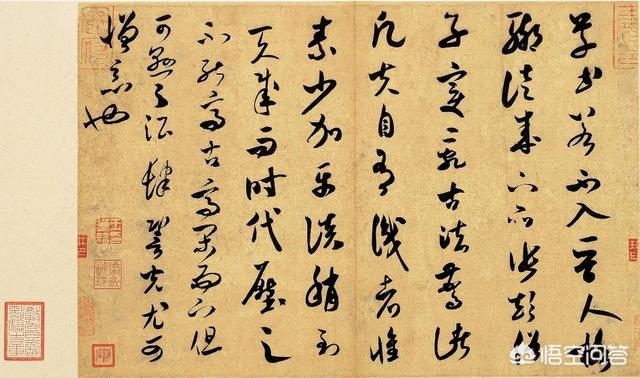 草書若不入晉人格
輒徒成下品張顛俗
子變亂古法驚諸
凡夫自有識者懷
素少加平淡稍到
天成而時代壓之
不能高古高閑而下但
可懸之酒肆䛒光尤可
憎惡也
悟空问答